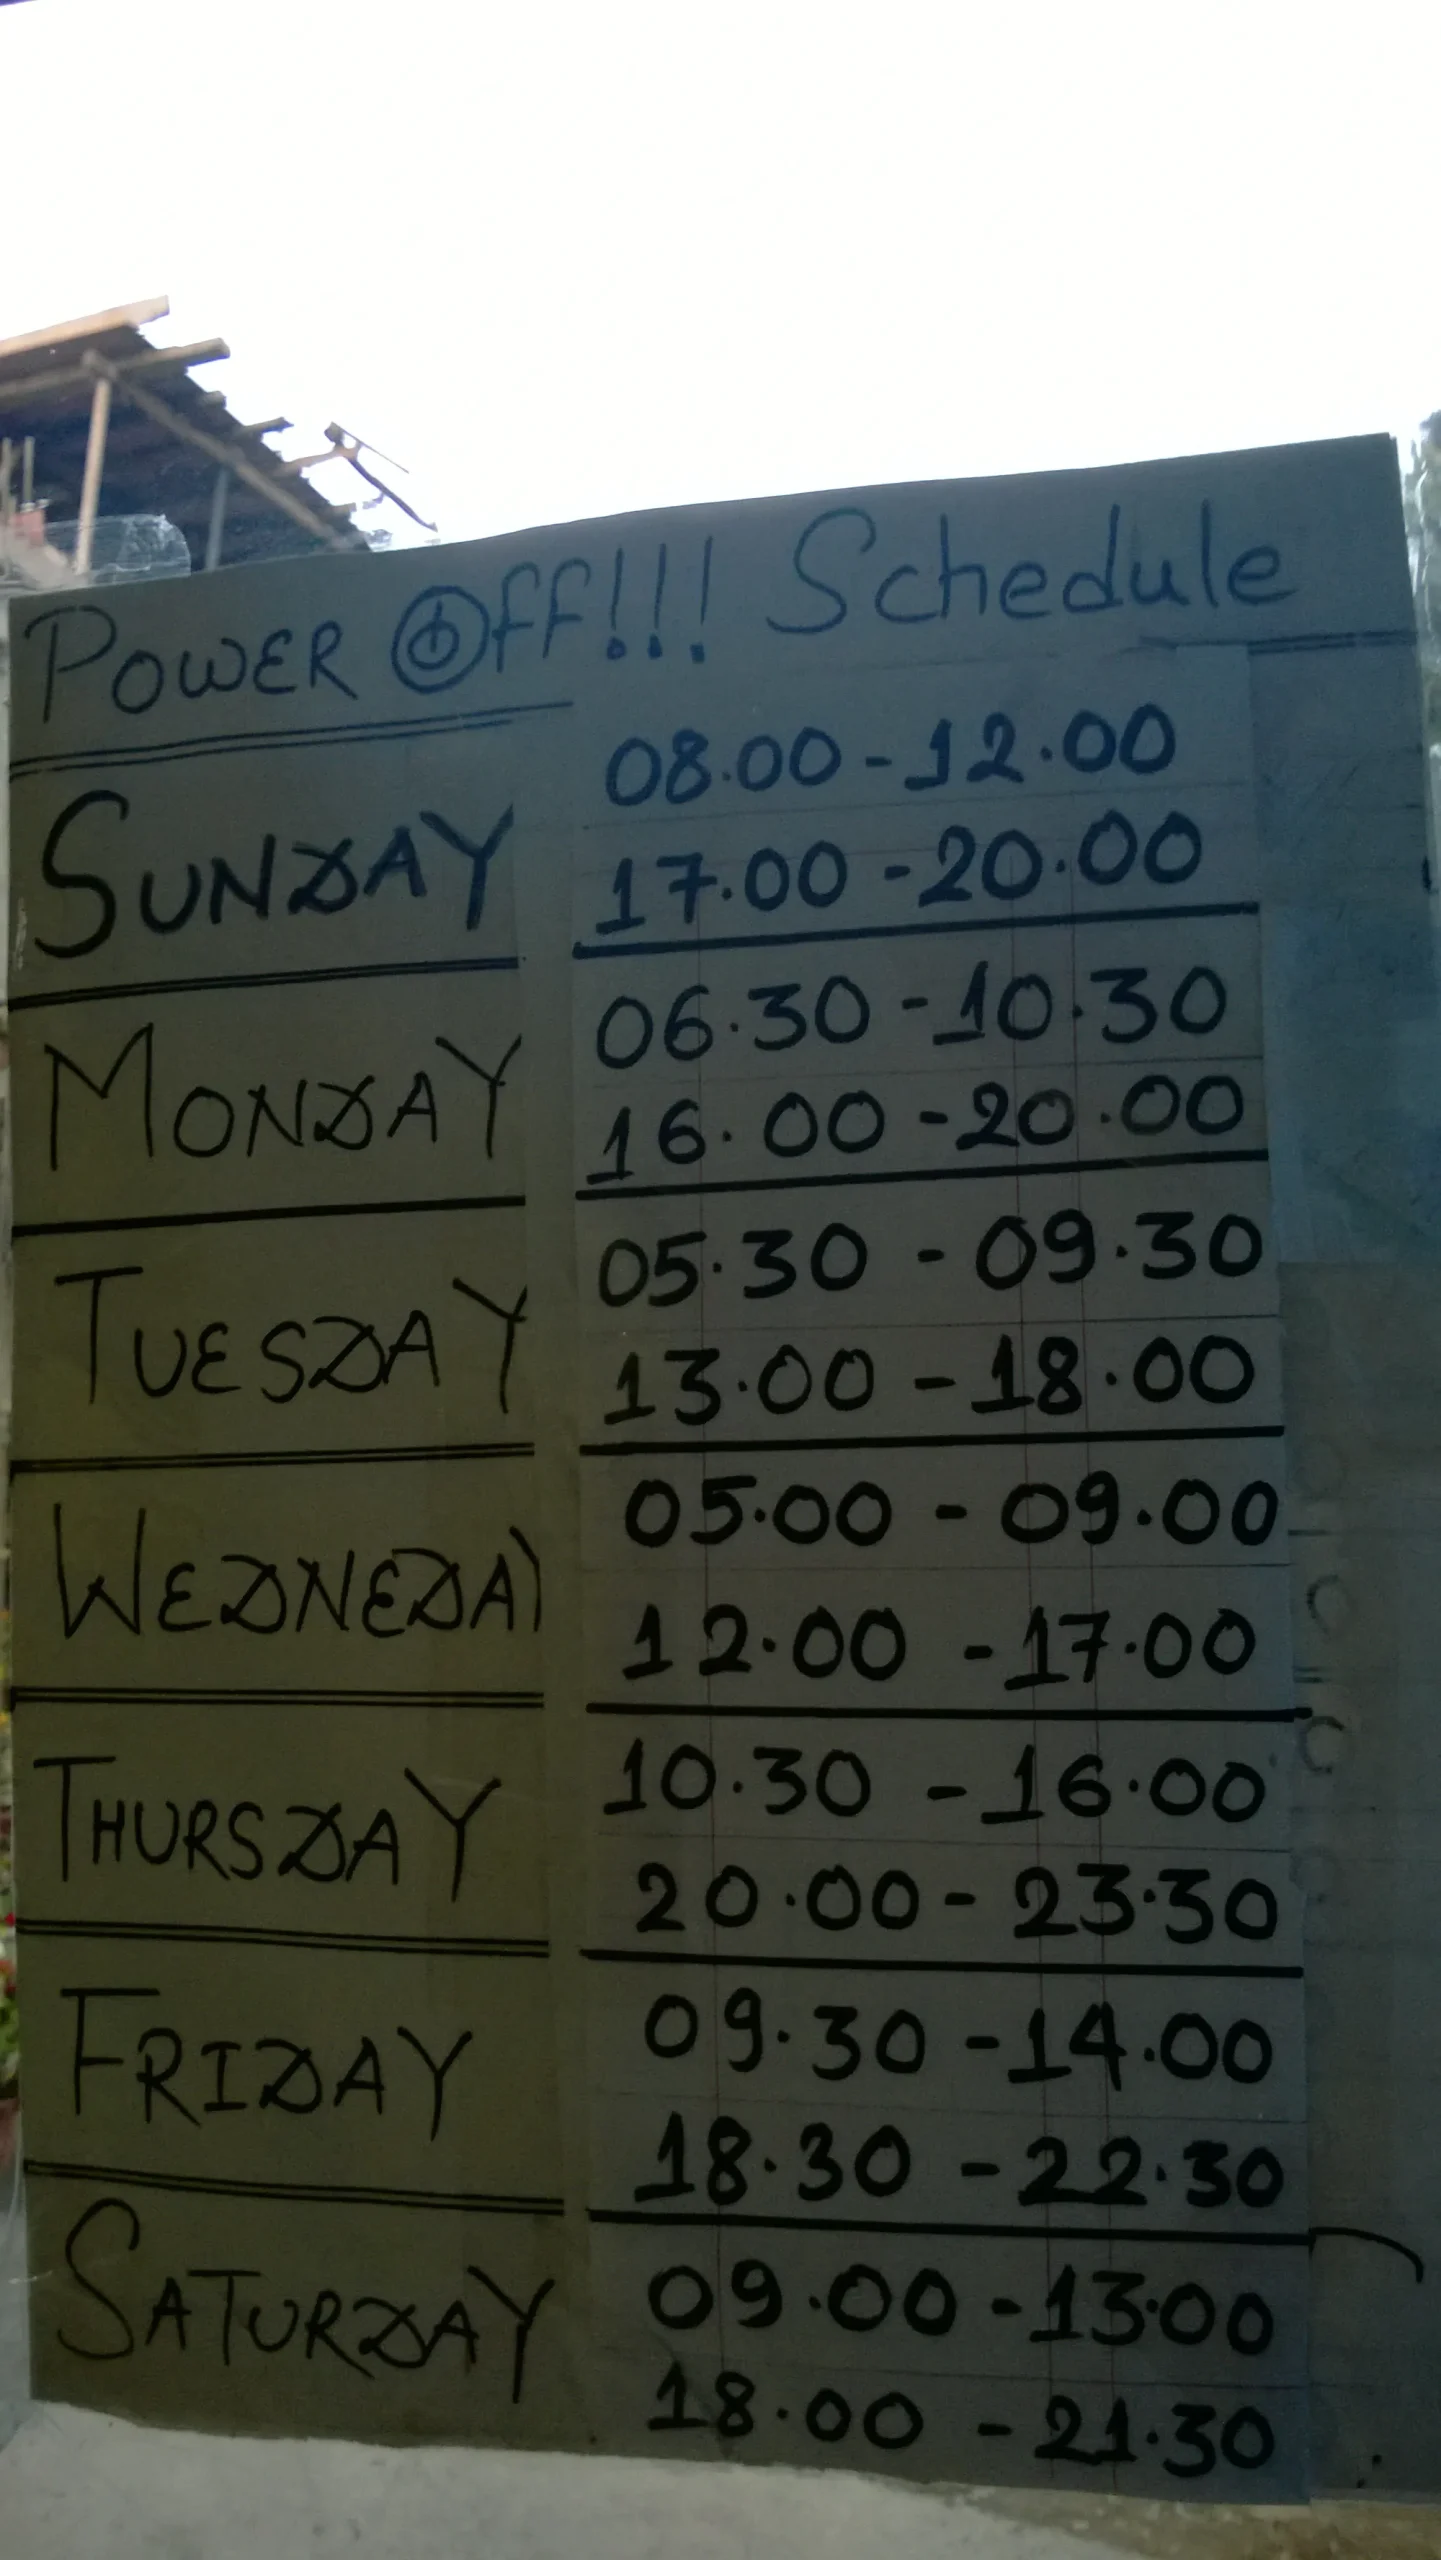 POWER OFF!!! Schedule
SUNDAY 08.00 - 12.00
17.00 - 20.00
MONDAY 06.30 - 10.30
16.00 - 20.00
TUESDAY 05.30 - 09.30
13.00 - 18.00
WEDNEDAY 05.00 - 09.00
12.00 - 17.00
THURSDAY 10.30 - 16.00
20.00 - 23.30
FRIDAY 09.30 - 14.00
18.30 - 22.30
SATURDAY 09.00 - 13.00
18.00 - 21.30